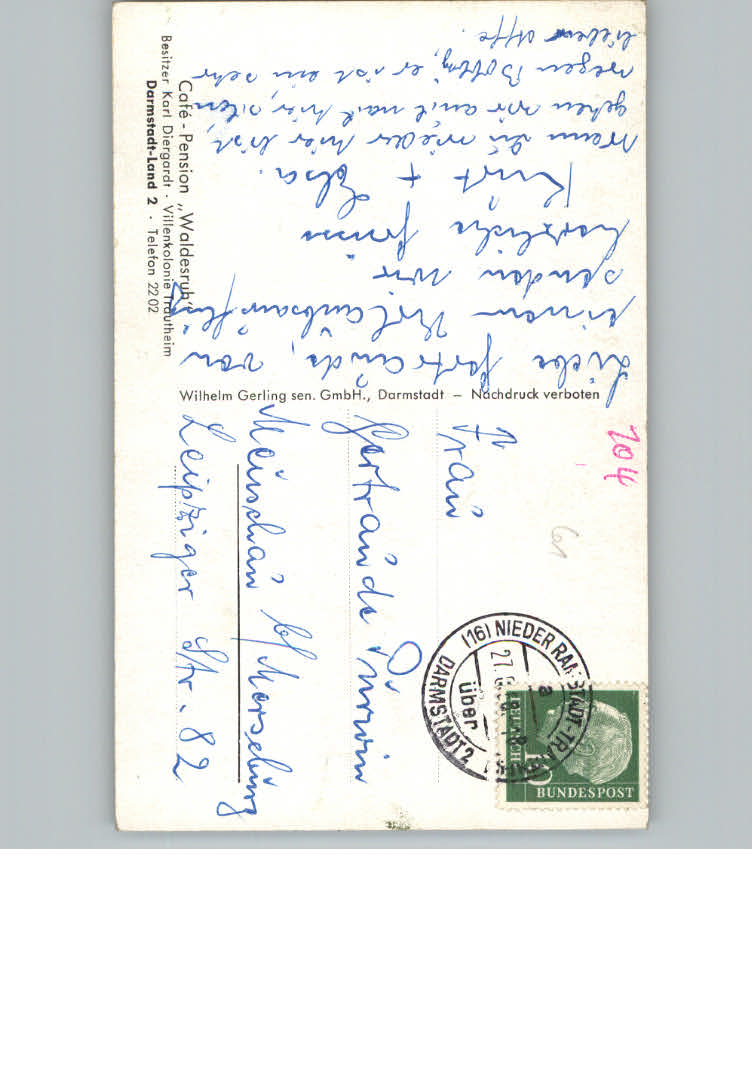 Café - Pension „Waldesruh"
Besitzer Karl Diergardt · Villenkolonie Trautheim
Darmstadt-Land 2 · Telefon 2202
Liebe Gertraude, von
einem Urlaubsausflug
senden wir
herzliche Grüße
Kurt +
Wenn du wieder hier bist,
gehen wir auch mal hier,
wegen er ist ein sehr
lieber Affe.
Wilhelm Gerling sen. GmbH., Darmstadt – Nachdruck verboten
Frau
Gertraude
Meuschau b/Merseburg
Leipziger Str. 82
104
61
(16) NIEDER RAMSTADT-TRAUTHEIM
über
DARMSTADT 2
27.
a
BUNDESPOST